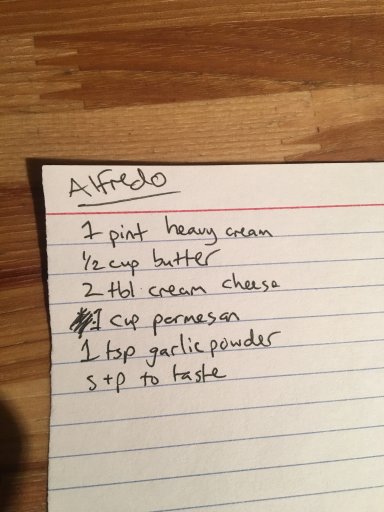 Alfredo
1 pint heavy cream
1/2 cup butter
2 tbl cream cheese
1 cup parmesan
1 tsp garlic powder
s+p to taste